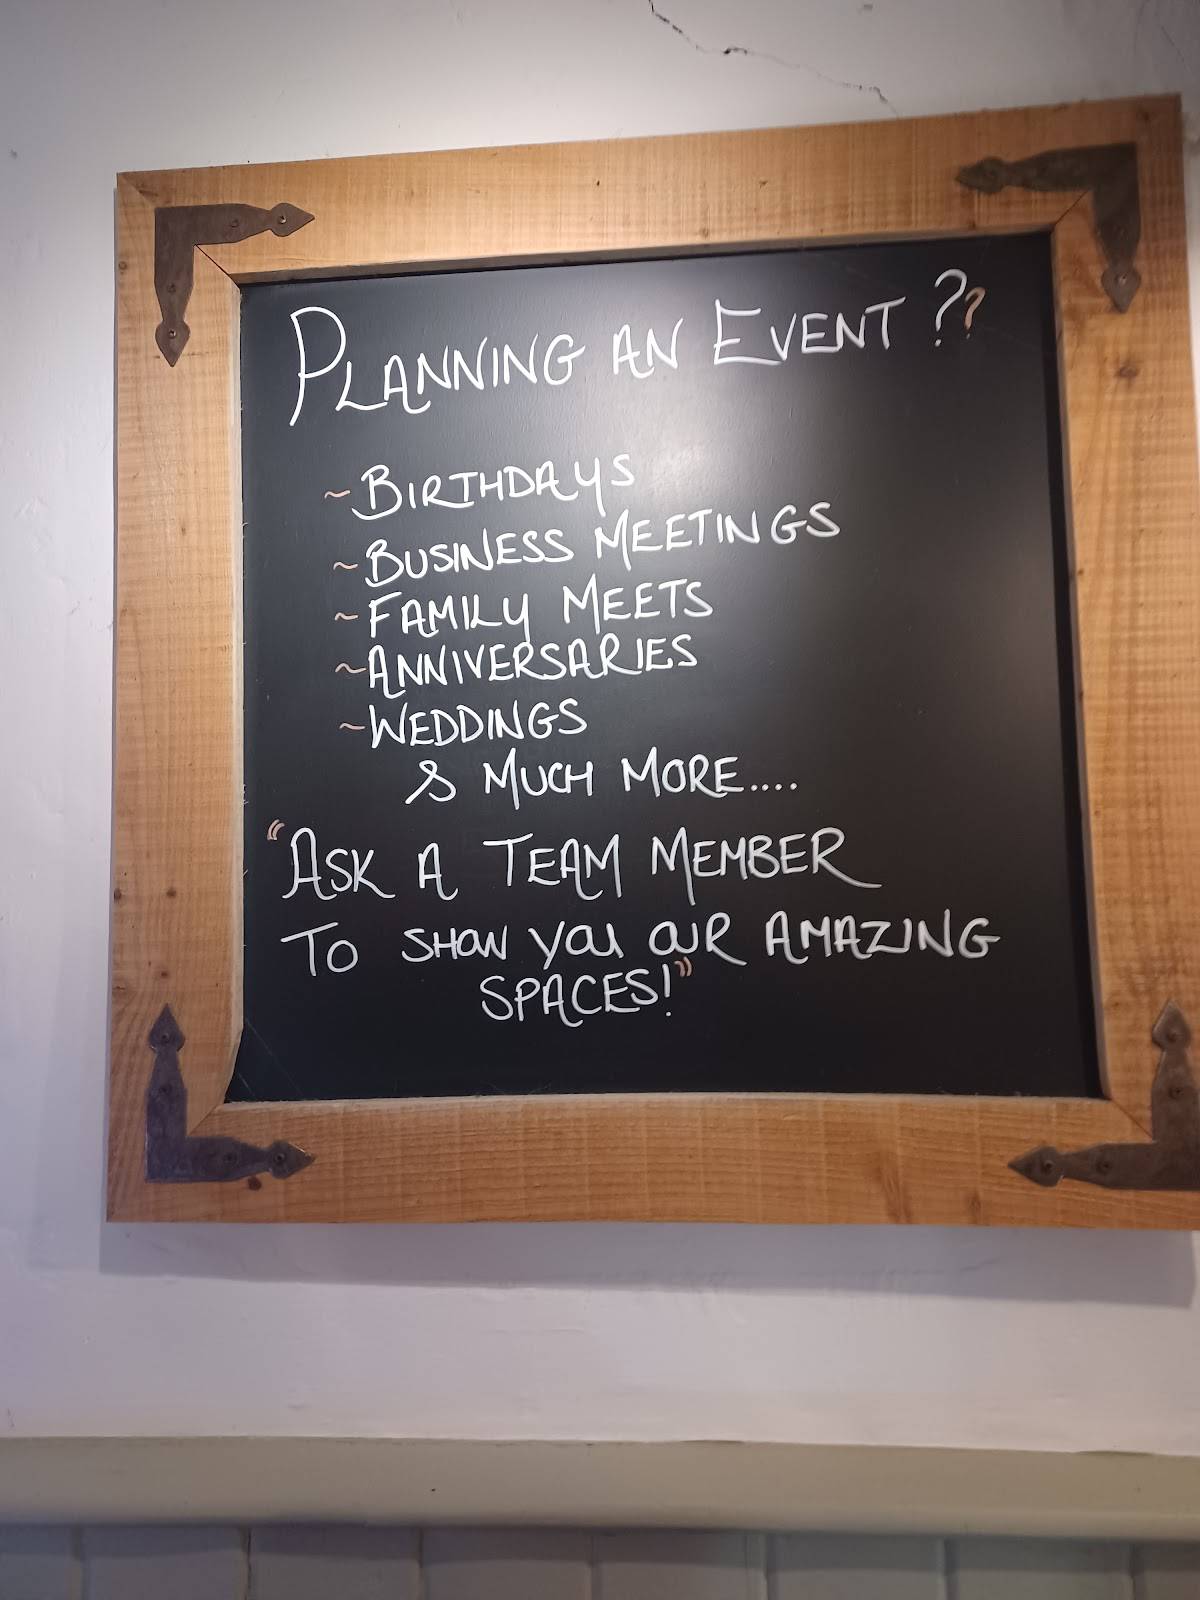 PLANNING AN EVENT ??
~BIRTHDAYS
~BUSINESS MEETINGS
~FAMILY MEETS
~ANNIVERSARIES
~WEDDINGS
& MUCH MORE....
"ASK A TEAM MEMBER
TO SHOW YOU OUR AMAZING
SPACES!"